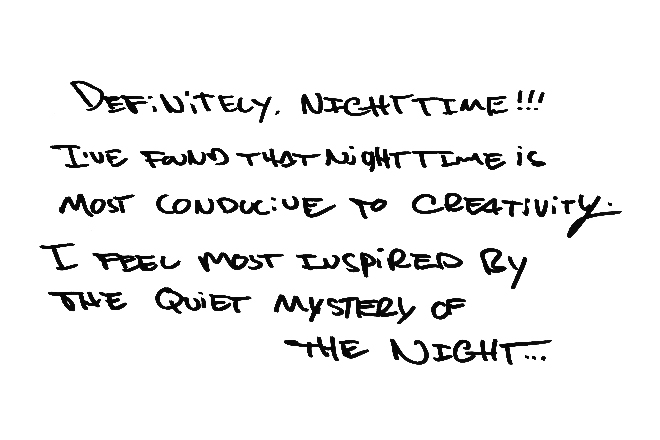 Definitely. Nighttime!!!
I've found that nighttime is
most conducive to creativity.
I feel most inspired by
the quiet mystery of
the night...